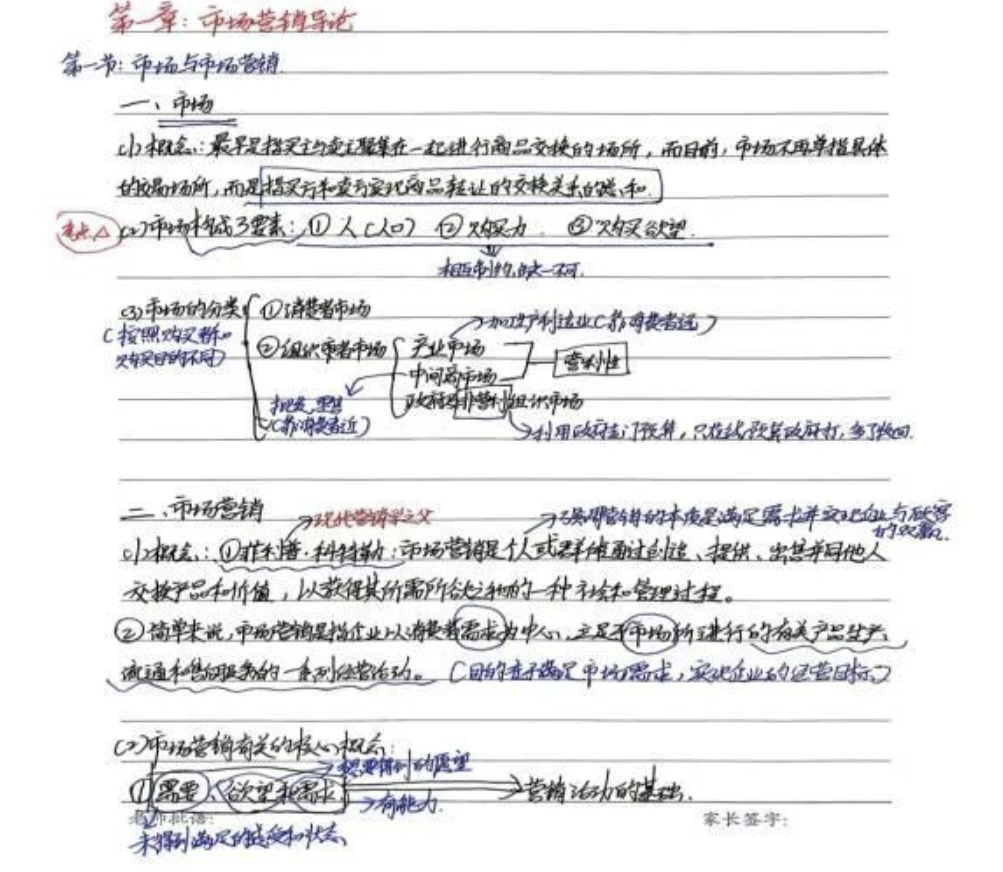 第一章：市场营销导论
第一节：市场与市场营销
一、市场
(1)概念：最早是指买主与卖主聚集在一起进行商品交换的场所，而目前，市场不再单指具体
的交易场所，而是指买方和卖方实现商品转让的交换关系的总和
考点△ (2)市场构成3要素：①人(人口) ②购买力 ③购买欲望
相互制约，缺一不可
(3)市场的分类 ①消费者市场
(按照购买者和购买目的不同)
→加工生产制造业(离消费者远)
②组织者市场 产业市场
中间商市场 营利性
批发、零售(离消费者近)
政府与非营利组织市场
→利用政府部门预算，只花钱
二、市场营销
→现代营销学之父
→说明营销的本质是满足需求并实现企业与顾客的双赢
(1)概念：①菲利普·科特勒：市场营销是个人或群体通过创造、提供、出售并同他人
交换产品和价值，以获得其所需所欲之物的一种社会和管理过程。
②简单来说，市场营销是指企业以消费者需求为中心，立足于市场所进行的有关产品生产、
流通和售后服务的一系列经营活动。(目的在于满足市场需求，实现企业的经营目标)
(2)市场营销有关的核心概念：
→想要得到的愿望
①需要、欲望和需求 →营销活动的基础
→有能力
老师批语： 家长签字：
未得到满足的感受和状态